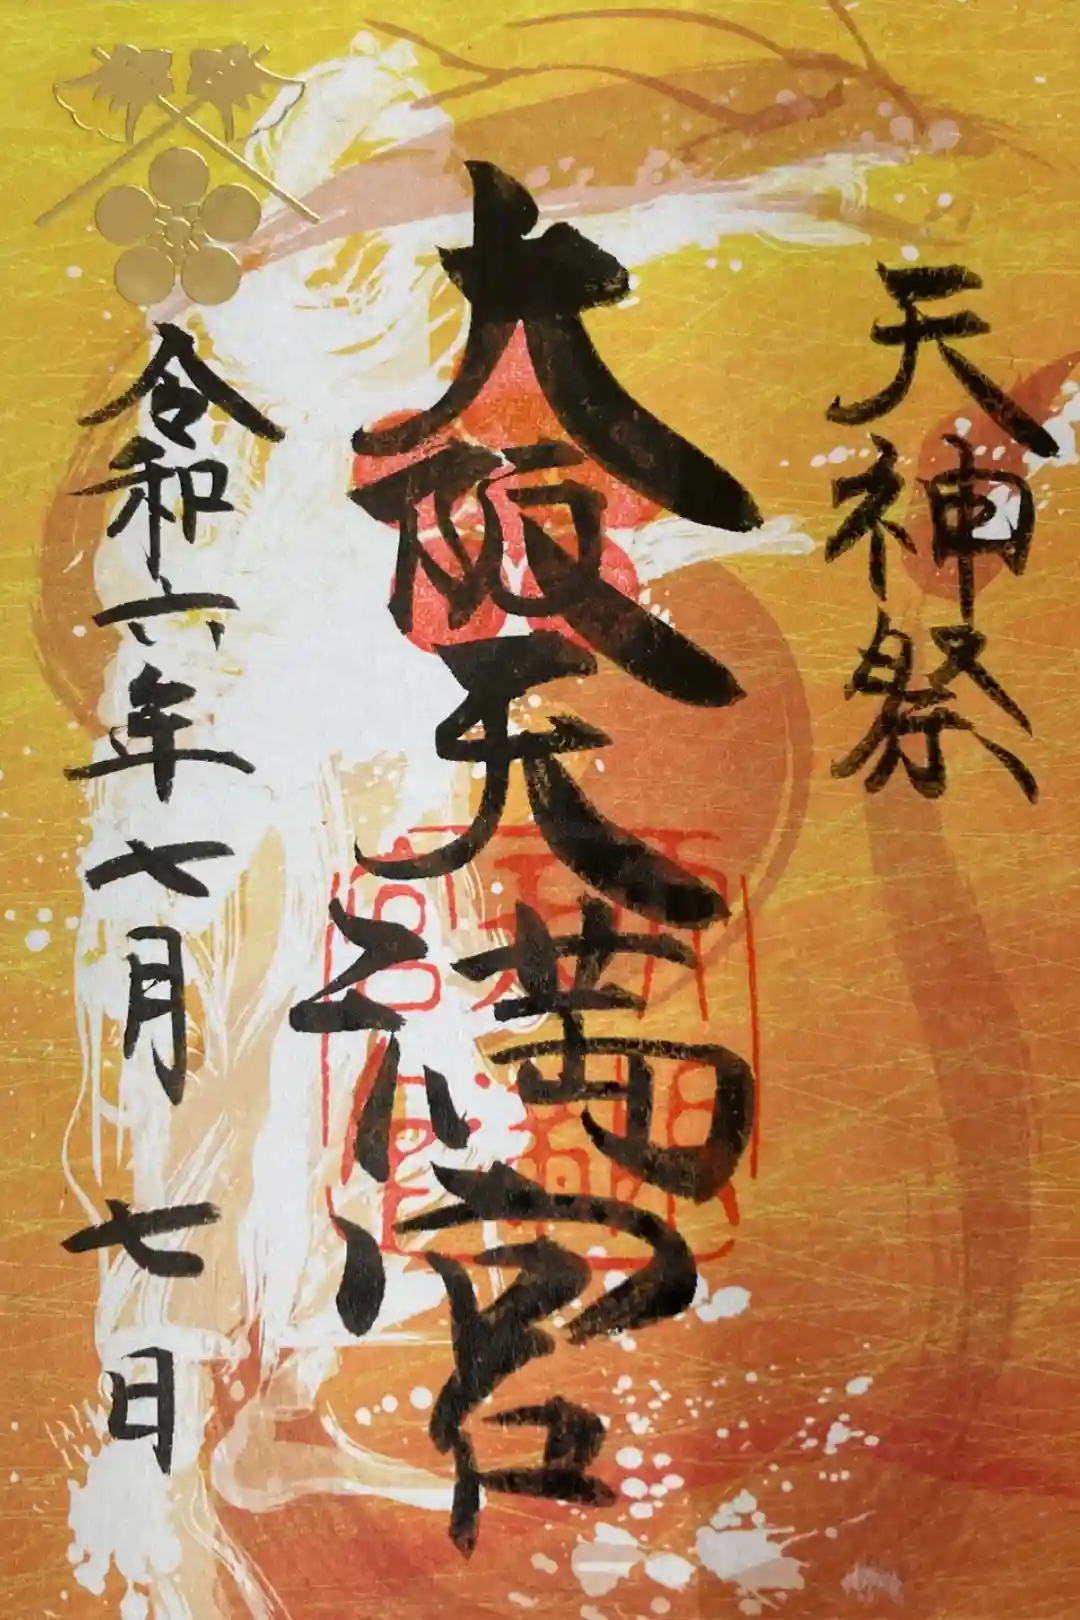 天神祭
大阪天満宮
令和六年七月七日